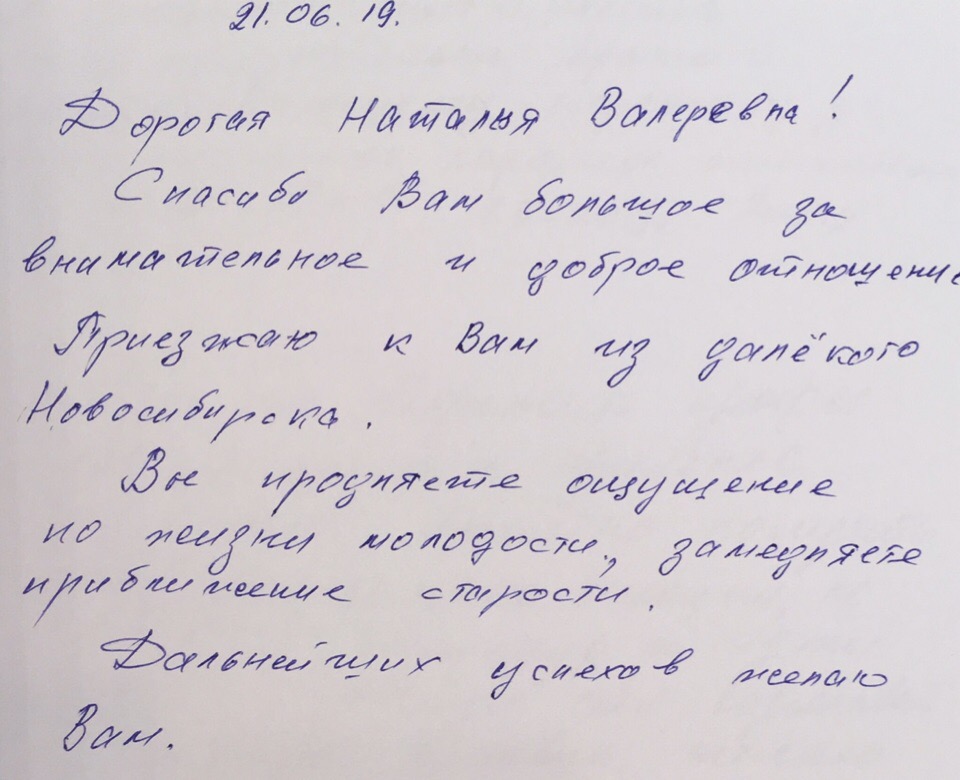 21. 06. 19.
Дорогая Наталья Валерьевна!
Спасибо Вам большое за
внимательное и доброе отношение
Приезжаю к Вам из далёкого
Новосибирска.
Вы продляете ощущение
по жизни молодости, замедляете
приближение старости.
Дальнейших успехов желаю
Вам.